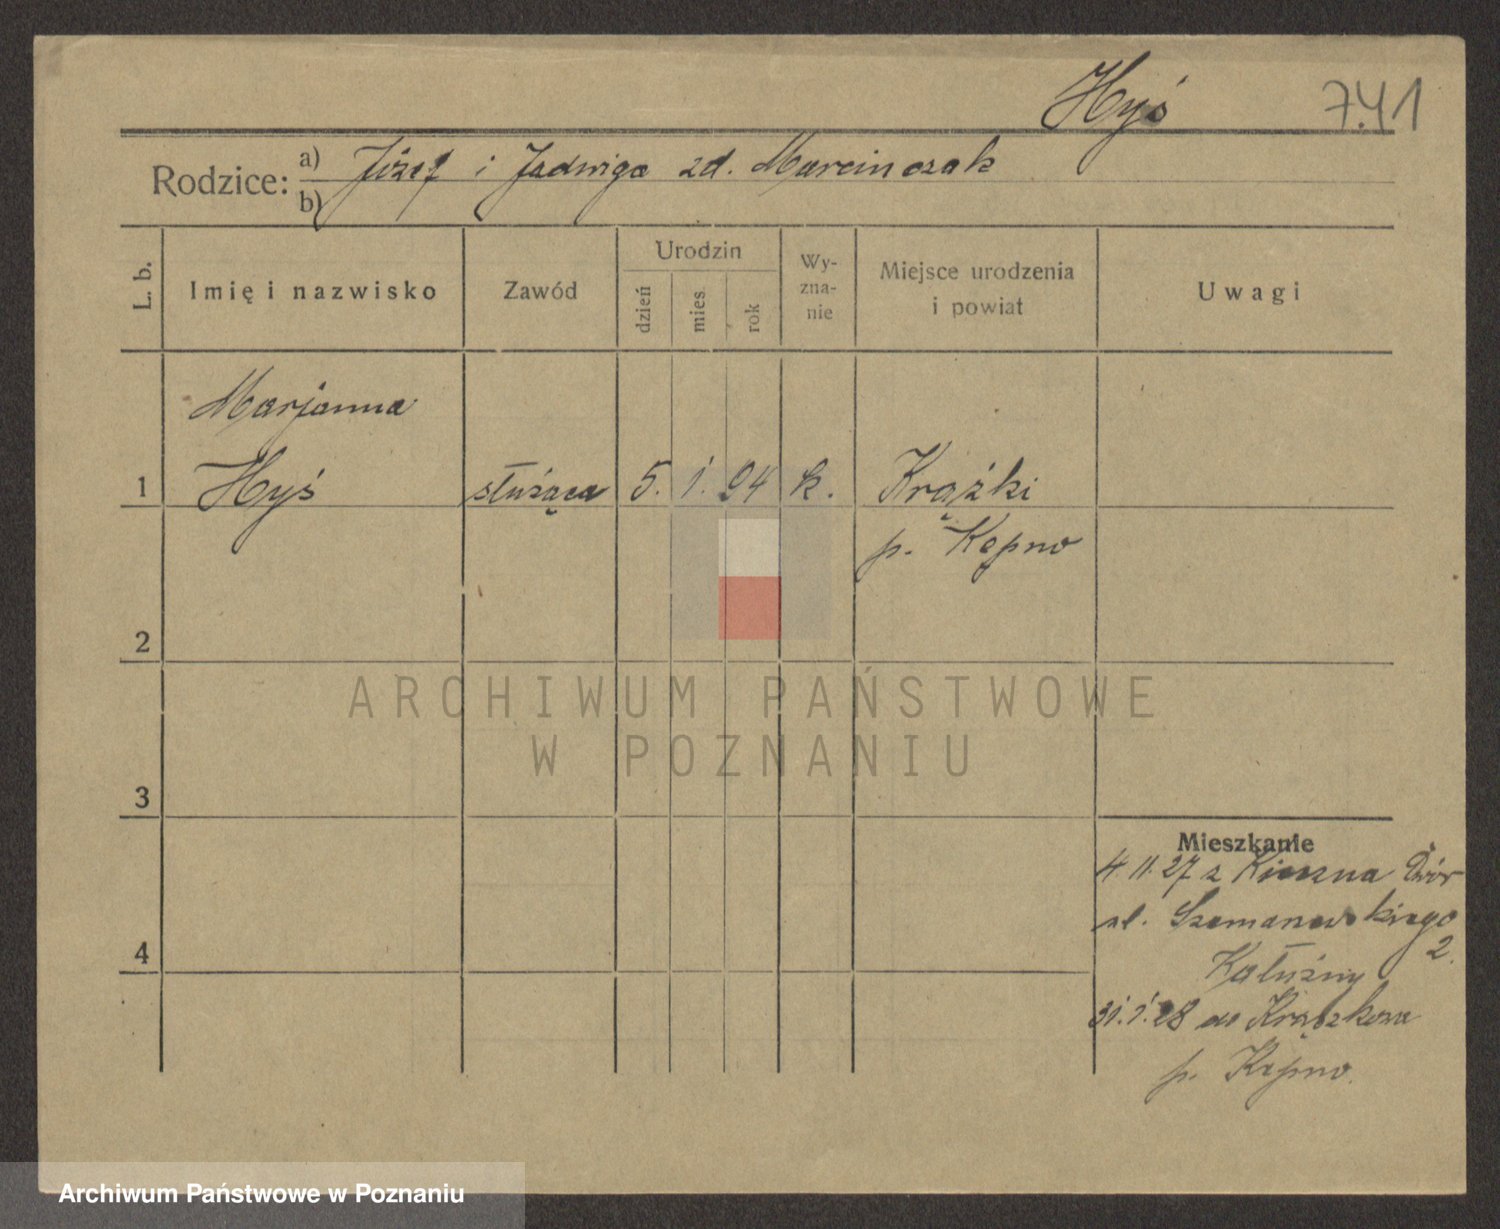 Hyś 7.41
Rodzice: a) Józef i Jadwiga zd. Marcinczak
b)
L. b. Imię i nazwisko Zawód Urodzin dzień mies. rok Wyznanie Miejsce urodzenia i powiat Uwagi
Marjanna
1 Hyś służąca 5. 1. 94 k. Krążki
p. Kępno
2
ARCHIWUM PAŃSTWOWE
W POZNANIU
3
Mieszkanie
4. 11. 27 z Dwór
ul. Szamarzewskiego
2.
4 Kałużny
31. 1. 28 do Krążkowa
p. Kępno.
Archiwum Państwowe w Poznaniu